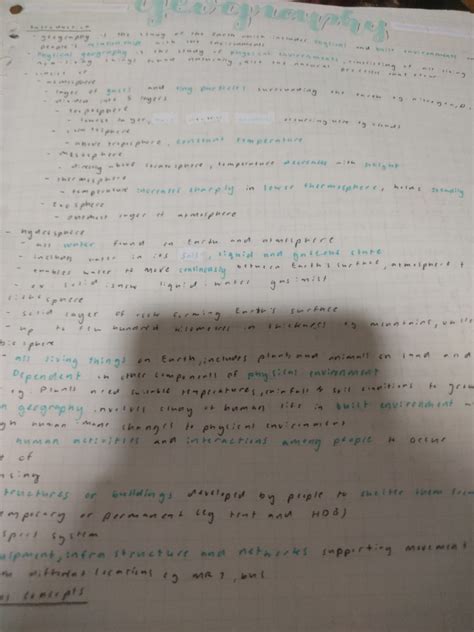 geography
Introduction
- geography is the study of the Earth which includes physical and built environments
people's relationship with the environments
- physical geography is the study of physical environments, consisting of all living
non-living things found naturally, also the natural processes that occur
- consist of
- atmosphere
- layer of gases and tiny particles surrounding the Earth eg nitrogen,
- divided into 5 layers
- troposphere
- lowest layer, occurring here eg clouds
- stratosphere
- above troposphere, constant temperature
- mesosphere
- directly above stratosphere, temperature decreases with height
- thermosphere
- temperature increases sharply in lower thermosphere, steadily
- exosphere
- outermost layer of atmosphere
- hydrosphere
- all water found on Earth and atmosphere
- includes water in its solid, liquid and gaseous state
- enables water to move continuously between Earth's surface, atmosphere +
- ex. solid: snow liquid: water gas: mist
- solid layer of rock forming Earth's surface
- up to few hundred kilometres in thickness eg mountains,
- all living things on Earth, includes plants and animals on land and
Dependent on other components of physical environment
eg. Plants need suitable temperatures, rainfall & soil conditions to
geography involves study of human life in built environment
human made changes to physical environment
human activities and interactions among people to
of
structures or buildings developed by people to shelter them
temporary or permanent (eg tent and HDB)
system
infrastructure and networks supporting movement
different locations eg MRT, bus
concepts